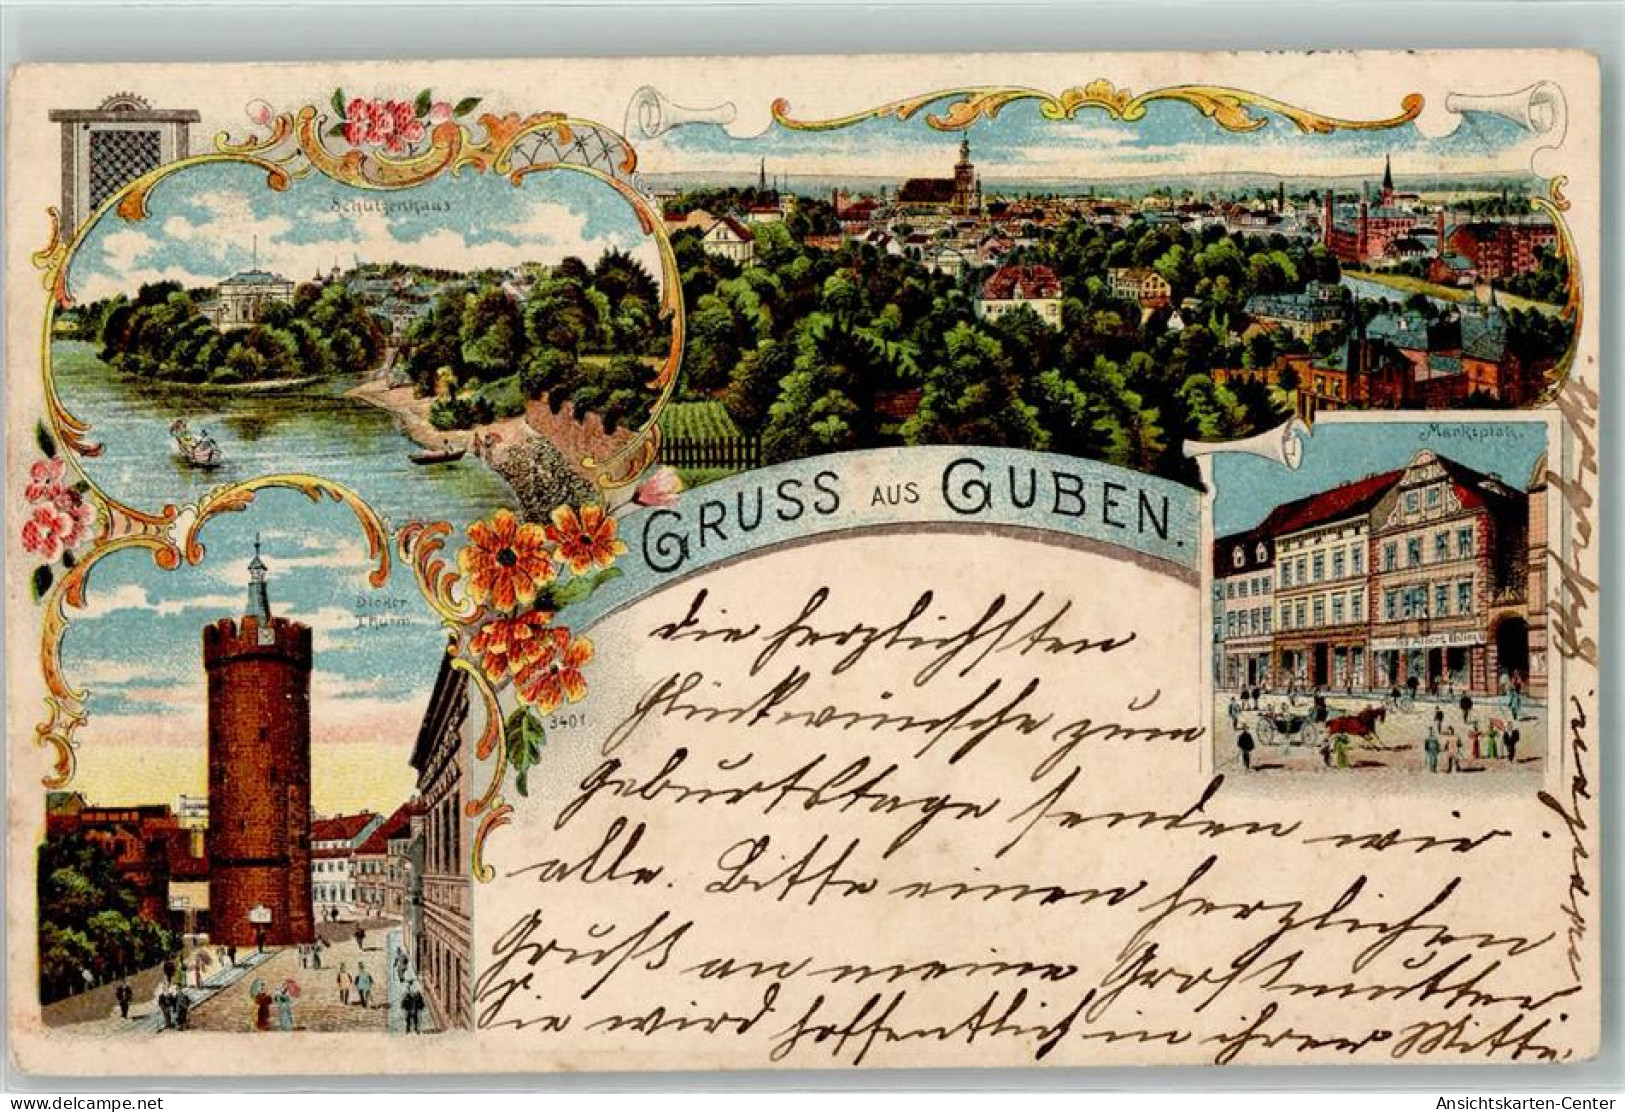 Schützenhaus
Marktplatz.
GRUSS AUS GUBEN.
Dicker
Thurm
3401.
die herzlichsten
Glückwünsche zum
Geburtstage senden wir
alle. Bitte einen herzlichen
Gruß an meine Großmutter
Sie wird hoffentlich in ihrer Mitte
delcampe.net
Ansichtskarten-Center